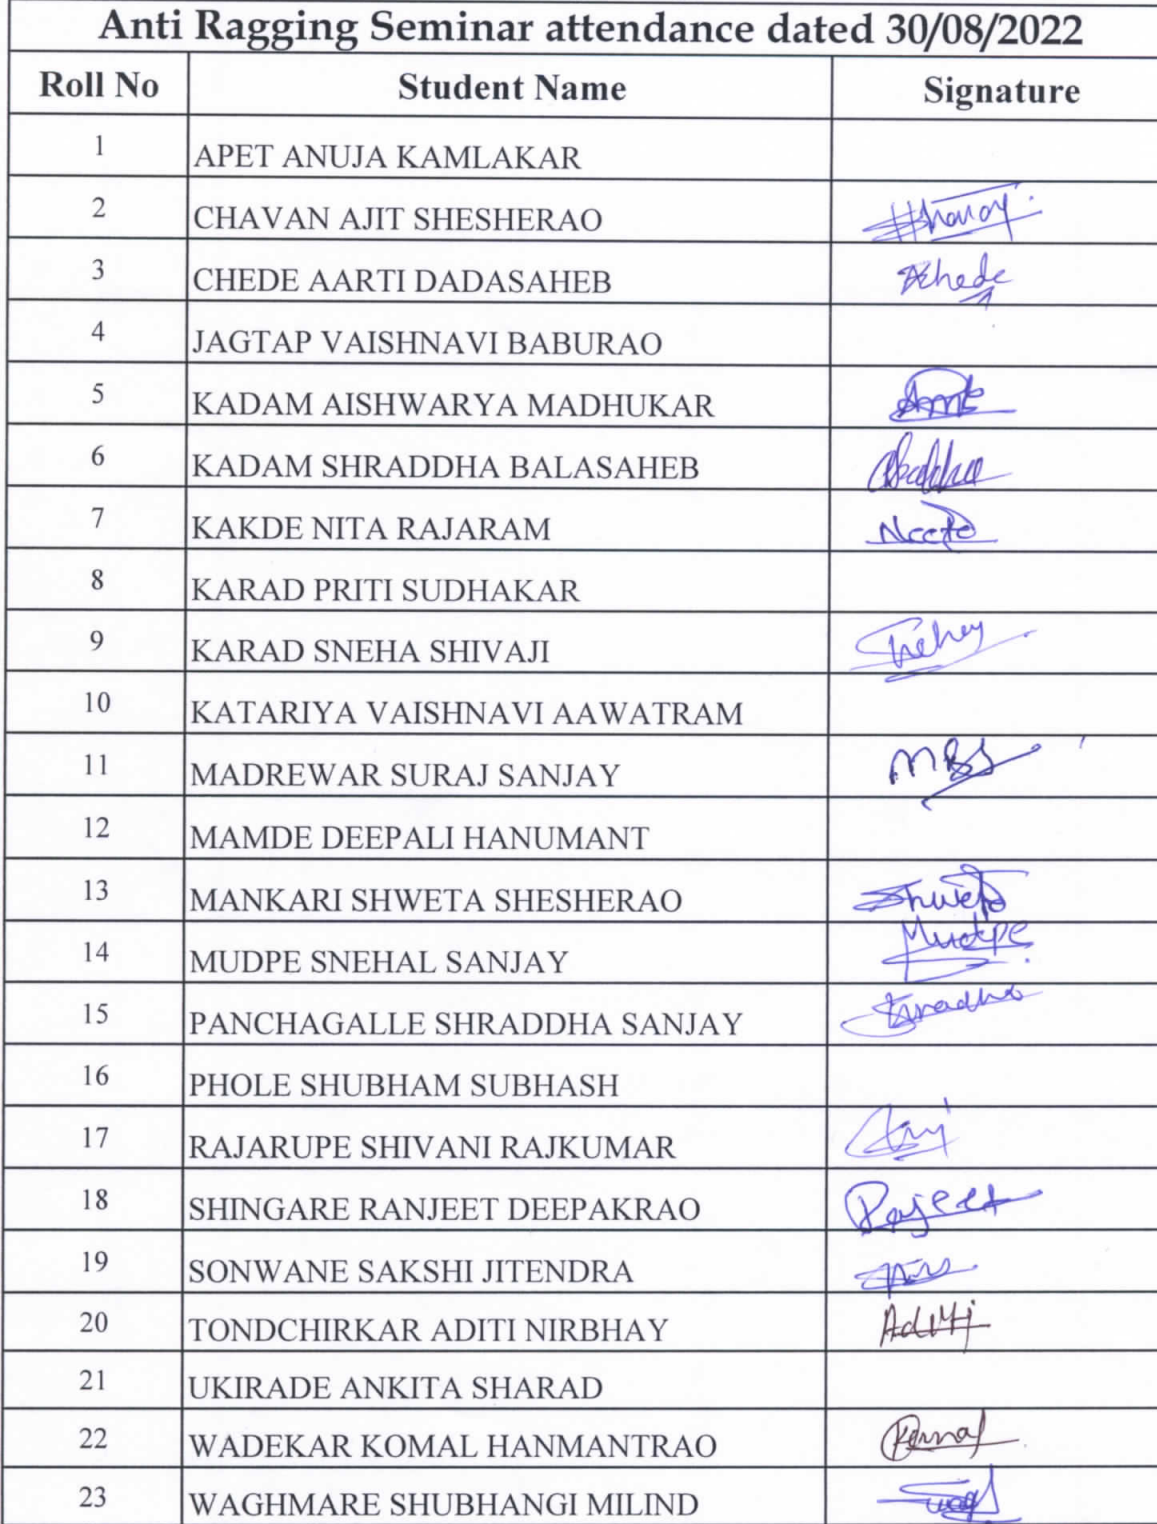 Anti Ragging Seminar attendance dated 30/08/2022
Roll No Student Name Signature
1 APET ANUJA KAMLAKAR
2 CHAVAN AJIT SHESHERAO
3 CHEDE AARTI DADASAHEB
4 JAGTAP VAISHNAVI BABURAO
5 KADAM AISHWARYA MADHUKAR
6 KADAM SHRADDHA BALASAHEB
7 KAKDE NITA RAJARAM Neeta
8 KARAD PRITI SUDHAKAR
9 KARAD SNEHA SHIVAJI
10 KATARIYA VAISHNAVI AAWATRAM
11 MADREWAR SURAJ SANJAY
12 MAMDE DEEPALI HANUMANT
13 MANKARI SHWETA SHESHERAO Shweta
14 MUDPE SNEHAL SANJAY Mudpe
15 PANCHAGALLE SHRADDHA SANJAY
16 PHOLE SHUBHAM SUBHASH
17 RAJARUPE SHIVANI RAJKUMAR
18 SHINGARE RANJEET DEEPAKRAO
19 SONWANE SAKSHI JITENDRA
20 TONDCHIRKAR ADITI NIRBHAY Aditi
21 UKIRADE ANKITA SHARAD
22 WADEKAR KOMAL HANMANTRAO
23 WAGHMARE SHUBHANGI MILIND